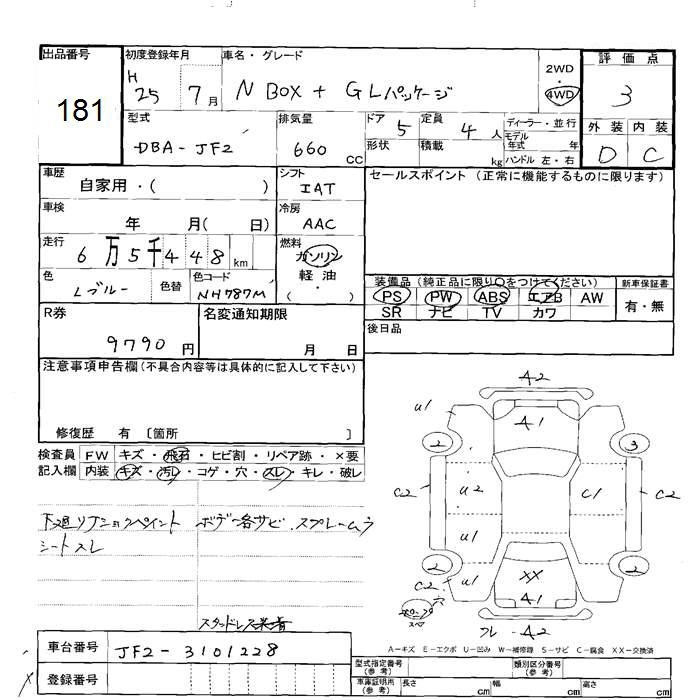 出品番号
181
初度登録年月
H 25 7月
車名・グレード
N BOX + G Lパッケージ
2WD
・
4WD
評価点
3
外装 内装
D C
型式
DBA-JF2
排気量
660 CC
ドア 5
形状
定員 4人
積載 kg
ディーラー・並行
モデル年式 年
ハンドル 左・右
車歴
自家用・( )
シフト
IAT
セールスポイント (正常に機能するものに限ります)
車検
年 月( 日)
冷房
AAC
走行
6万5千448km
燃料
ガソリン
軽油
・
( )
色
Lブルー
色替
色コード
NH787M
装備品 (純正品に限り○をつけてください)
PS PW ABS エアB AW
SR ナビ TV カワ
新車保証書
有・無
R券
9790円
名変通知期限
月 日
後日品
注意事項申告欄 (不具合内容等は具体的に記入して下さい)
修復歴 有 〔箇所 〕
検査員記入欄
FW キズ・飛石・ヒビ割・リペア跡・×要
内装 キズ・汚レ・コゲ・穴・スレ・キレ・破レ
ボデー各サビ. スプレームラ
シートスレ
スタッドレス装着
A2
u1
A1
2
3
C2
u2
C1
C2
u1
2
2
C2
u1
XX
A1
穴
スペア
フレ -A2
A-キズ E-エクボ U-凹み W-補修跡 S-サビ C-腐食 XX-交換済
車台番号
JF2-3101228
登録番号
型式指定番号
(参考)
類別区分番号
(参考)
車庫証明用
(参考)
長さ cm 幅 cm 高さ cm